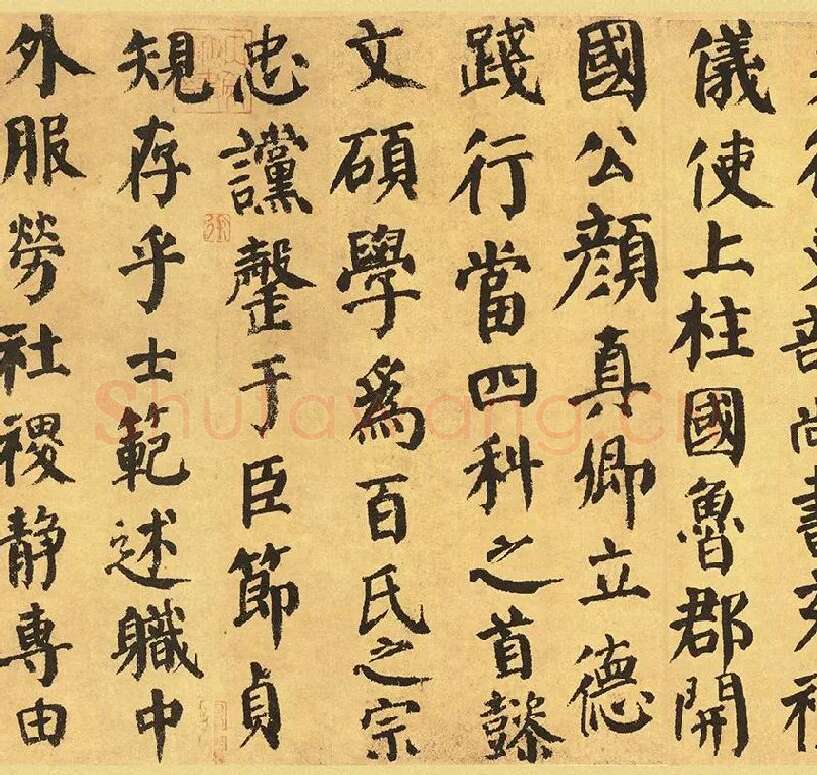 尚書
儀使上柱國魯郡開
國公顔真卿立德
踐行當四科之首懿
文碩學爲百氏之宗
忠讜罄于臣節貞
規存乎士範述職中
外服勞社稷静專由
Shufawang.cn